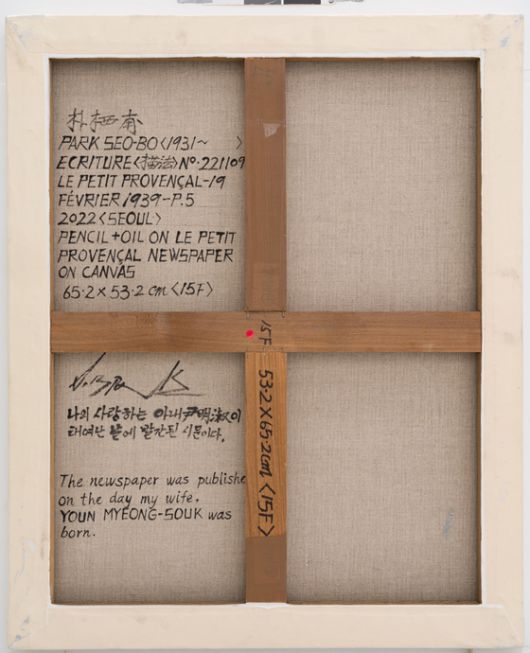 朴栖甫
PARK SEO-BO〈1931~ 〉
ECRITURE〈描法〉No.221109
LE PETIT PROVENÇAL-19
FÉVRIER 1939-P.5
2022〈SEOUL〉
PENCIL+OIL ON LE PETIT
PROVENÇAL NEWSPAPER
ON CANVAS
65.2×53.2cm〈15F〉
15F
53.2×65.2cm〈15F〉
나의 사랑하는 아내尹明淑이
태여난 날에 발간된 신문이다.
The newspaper was publishe
on the day my wife.
YOUN MYEONG-SOUK was
born.